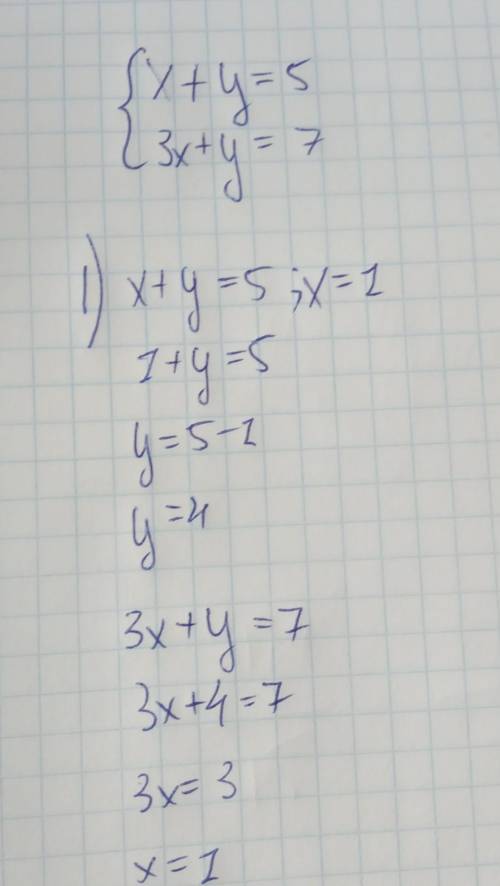 {x+y=5
3x+y=7
1) x+y=5 ; x=1
1+y=5
y=5-1
y=4
3x+y=7
3x+4=7
3x=3
x=1